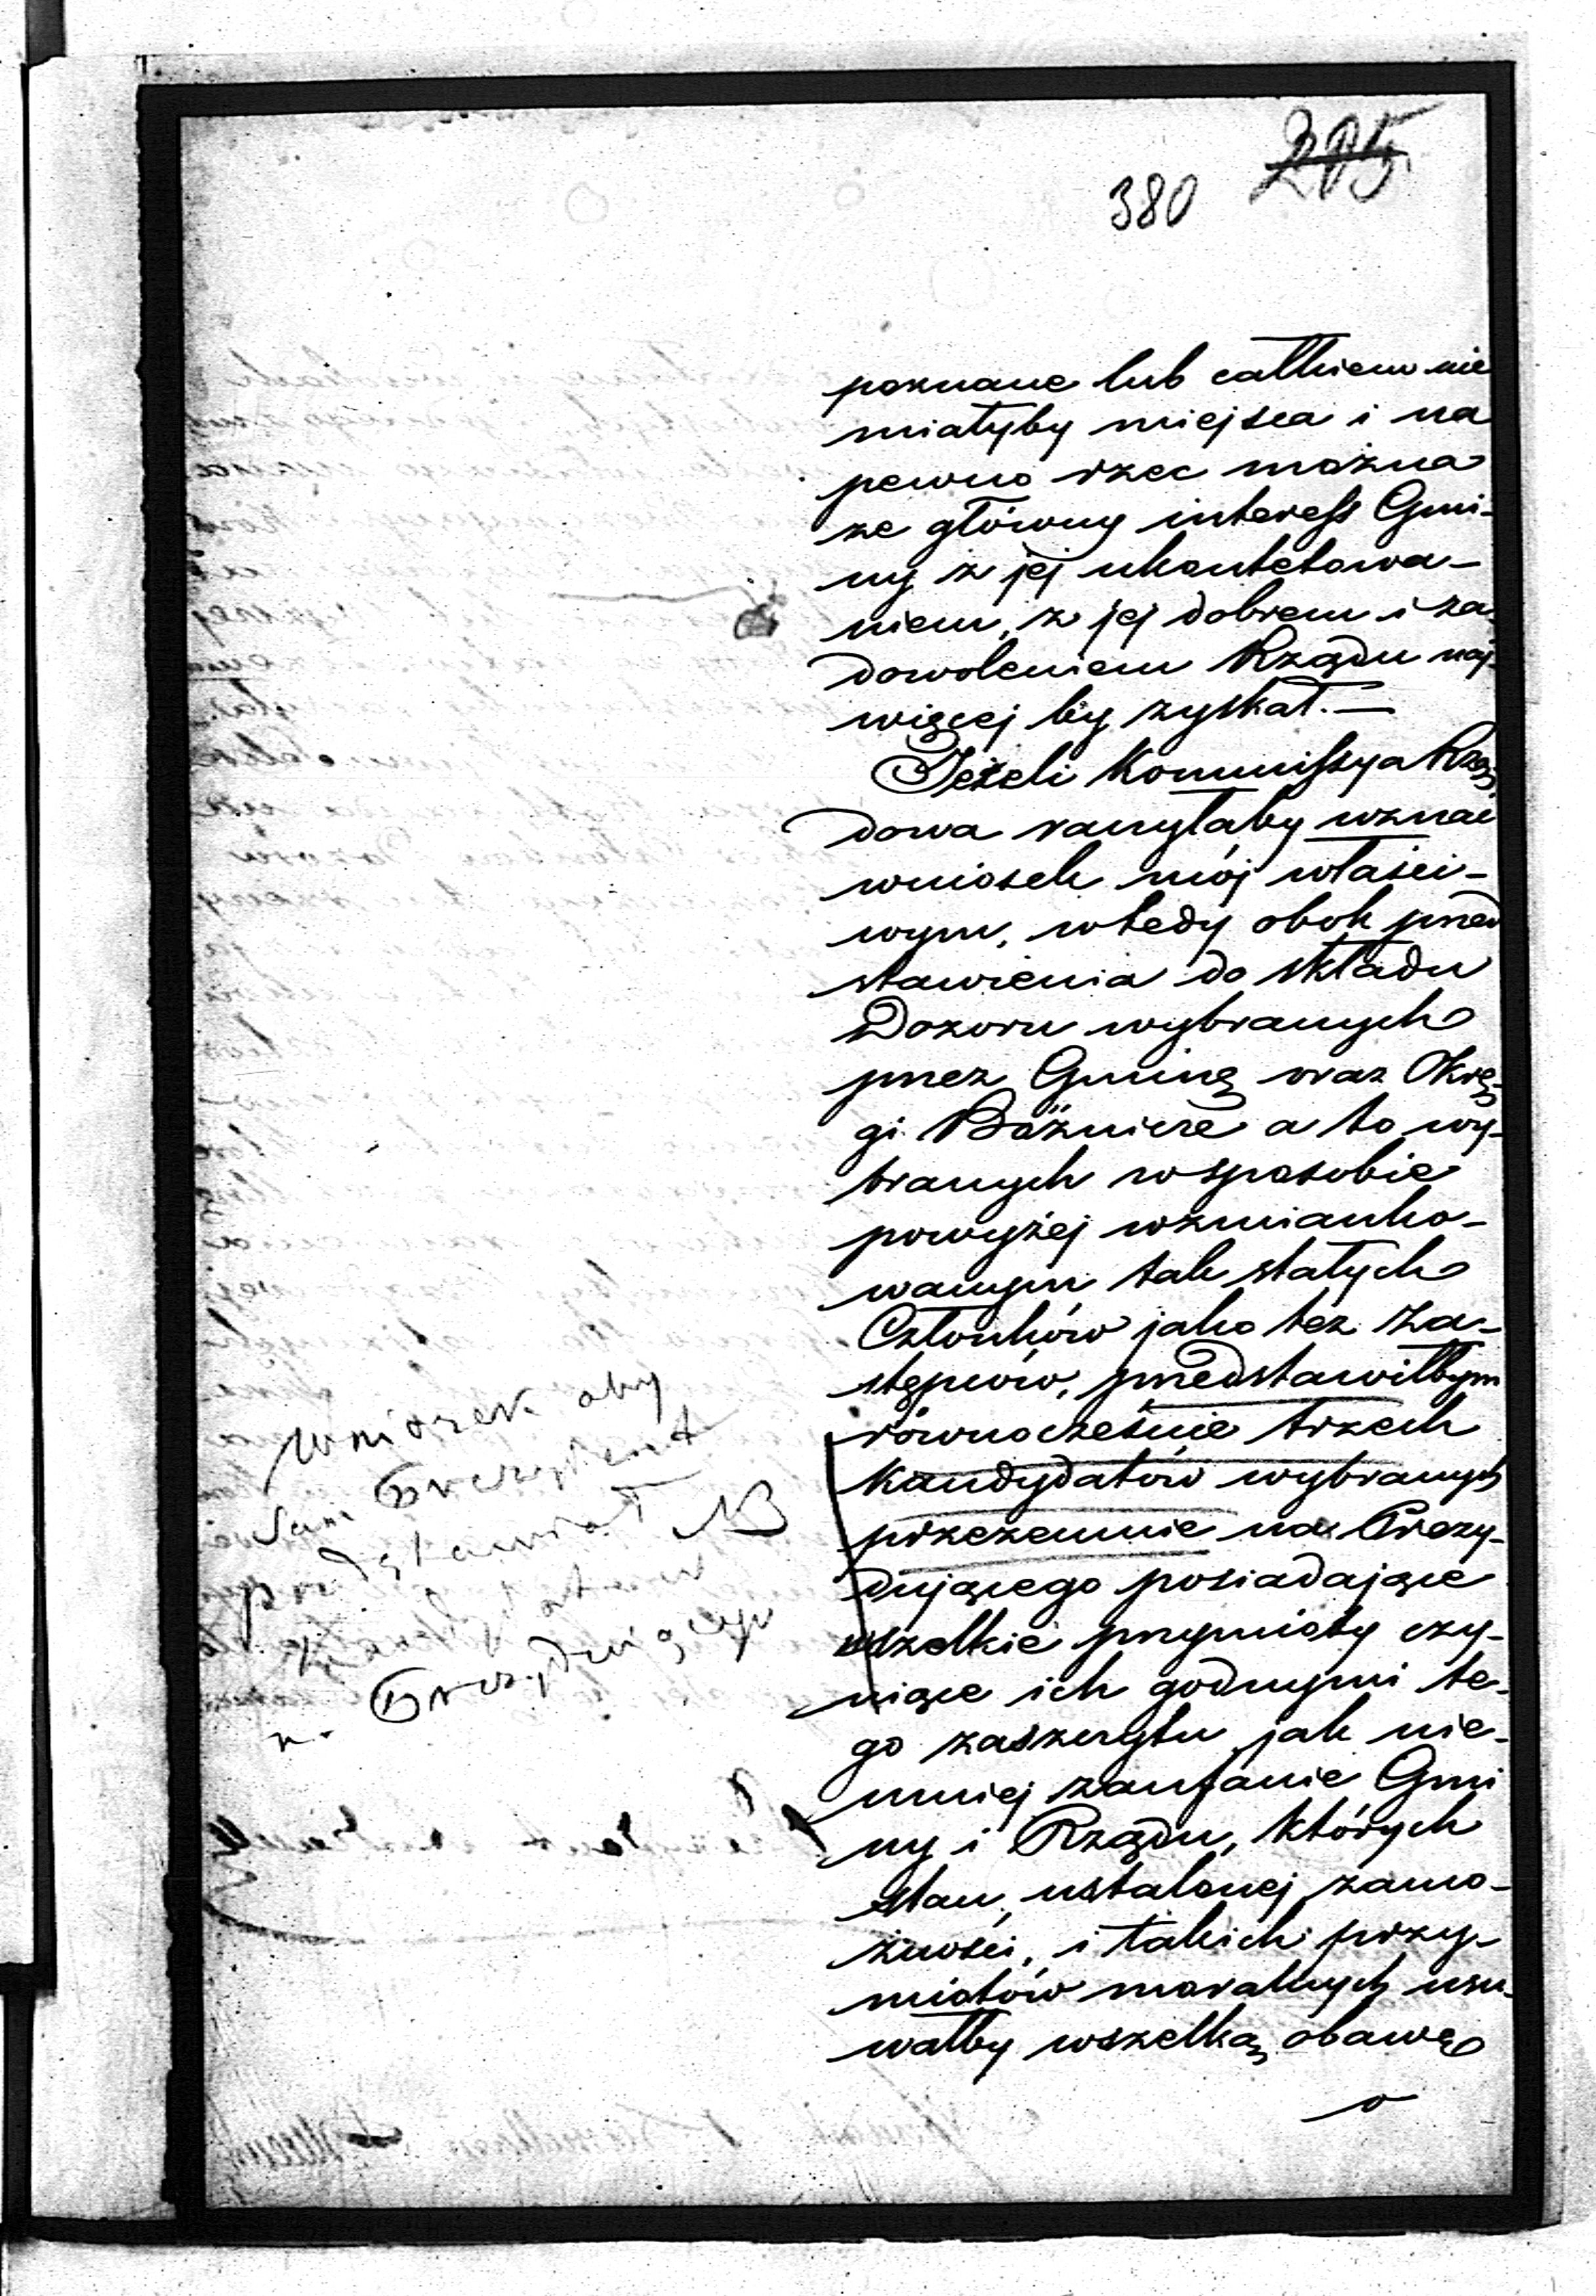 380 205
poznane lub całkiem nie
miałyby miejsca i na
pewno rzec można
że główny interess Gmi-
ny z jej ukontetowa-
niem, z jej dobrem i za-
dowoleniem Rządu naj-
więcej by zyskał. —
Jeżeli Kommissya Rzą-
dowa raczyłaby uznać
wniosek mój właści-
wym, wtedy obok przed
stawienia do składu
Dozoru wybranych
przez Gminę oraz Okrę-
gi Bóżnicze a to wy-
branych w sposobie
powyżej wzmianko-
wanym tak stałych
Członków jako też Za-
stępców, przedstawiłbym
równocześnie trzech
Kandydatów wybranych
przezemnie na Prezy-
dującego posiadające
wszelkie przymioty czy-
niące ich godnymi te-
go zaszczytu jak nie-
mniej zaufanie Gmi
ny i Rządu, których
stan, ustalonej zamo-
żności, i takich przy-
miotów moralnych usu-
wałby wszelką obawę
o
Wniosek aby
sam Prezydent
przedstawiał NB
Kandydatów
n. Prezydującego